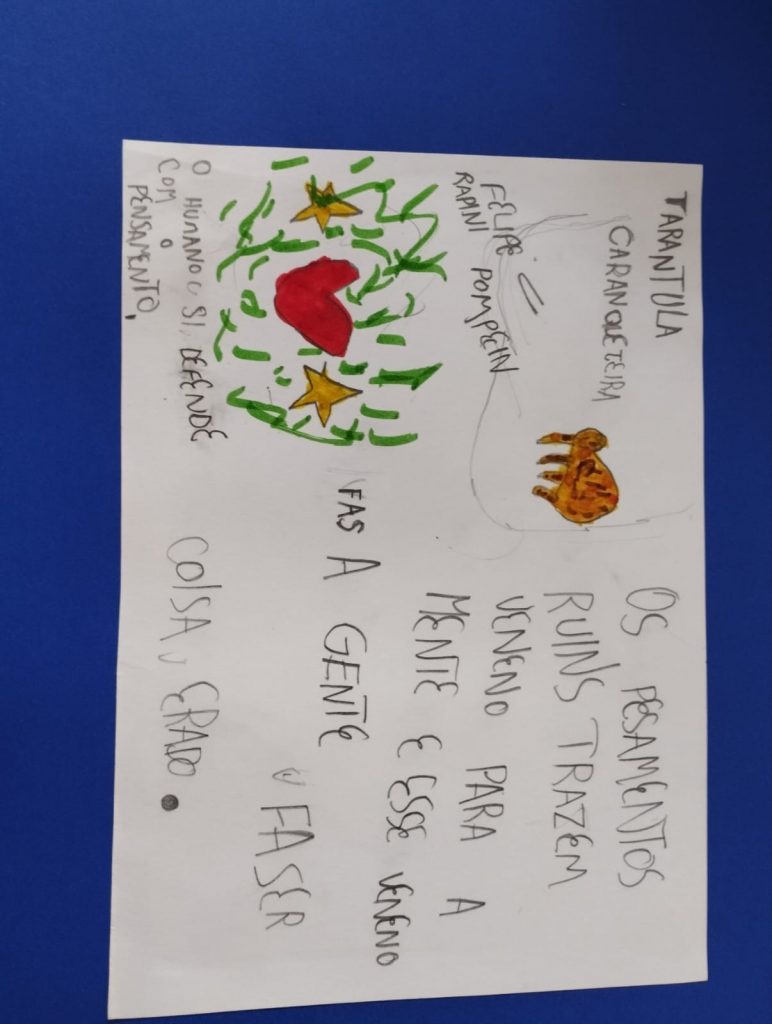 TARANTULA
CARANQUEZEIRA
FELIPE POMPEIN
RAPINI
O HUMANO SI DEFENDE
COM O
PENSAMENTO,
OS PESAMENTOS
RUINS TRAZEM
VENENO PARA A
MENTE E ESSE VENENO
FAS A GENTE
FASER
COISA ERADO.